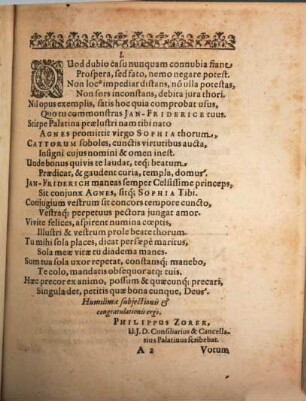 I.
QUod dubio casu nunquam connubia fiant
Prospera, sed fato, nemo negare potest.
Non locꝰ impediat distans, nõ ulla potestas,
Non sors inconstans, debita jura thori.
Nil opus exemplis, satis hoc quia comprobat usus,
Quo tu commonstras JAN-FRIDERICE tuus.
Stirpe Palatina præ lustri nam tibi nato
AGNES promittit virgo SOPHIA thorum,
CATTORUM soboles, cunctis virtutibus aucta,
Insigni cujus nomini & omen inest.
Unde bonus quivis te laudat, teq; beatum
Prædicat, & gaudent curia, templa, domus.
JAN-FRIDERICH maneas semper Celsissime princeps,
Sit conjunx AGNES, sitq; SOPHIA Tibi.
Conjugium vestrum sit concors tempore cuncto,
Vestraq; perpetuus pectora jungat amor.
Vivite felices, aspirent numina cœptis,
Illustri & vestrum prole beate thorum.
Tu mihi sola places, dicat persæpè maritus,
Sola meæ vitæ tu diadema manes.
Sum tua sola uxor repetat, constansq; manebo,
Te colo, mandatis obsequor atq; tuis.
Hæc precor ex animo, possum & quæcunq; precari,
Singula det, petitis quæ bona cunque, Deus.
Humilimæ subjectionis &
congratulationis ergò,
PHILIPPUS ZORER,
U.J.D. Consiliarius & Cancella-
rius Palatinus scribebat.
A 2 Votum